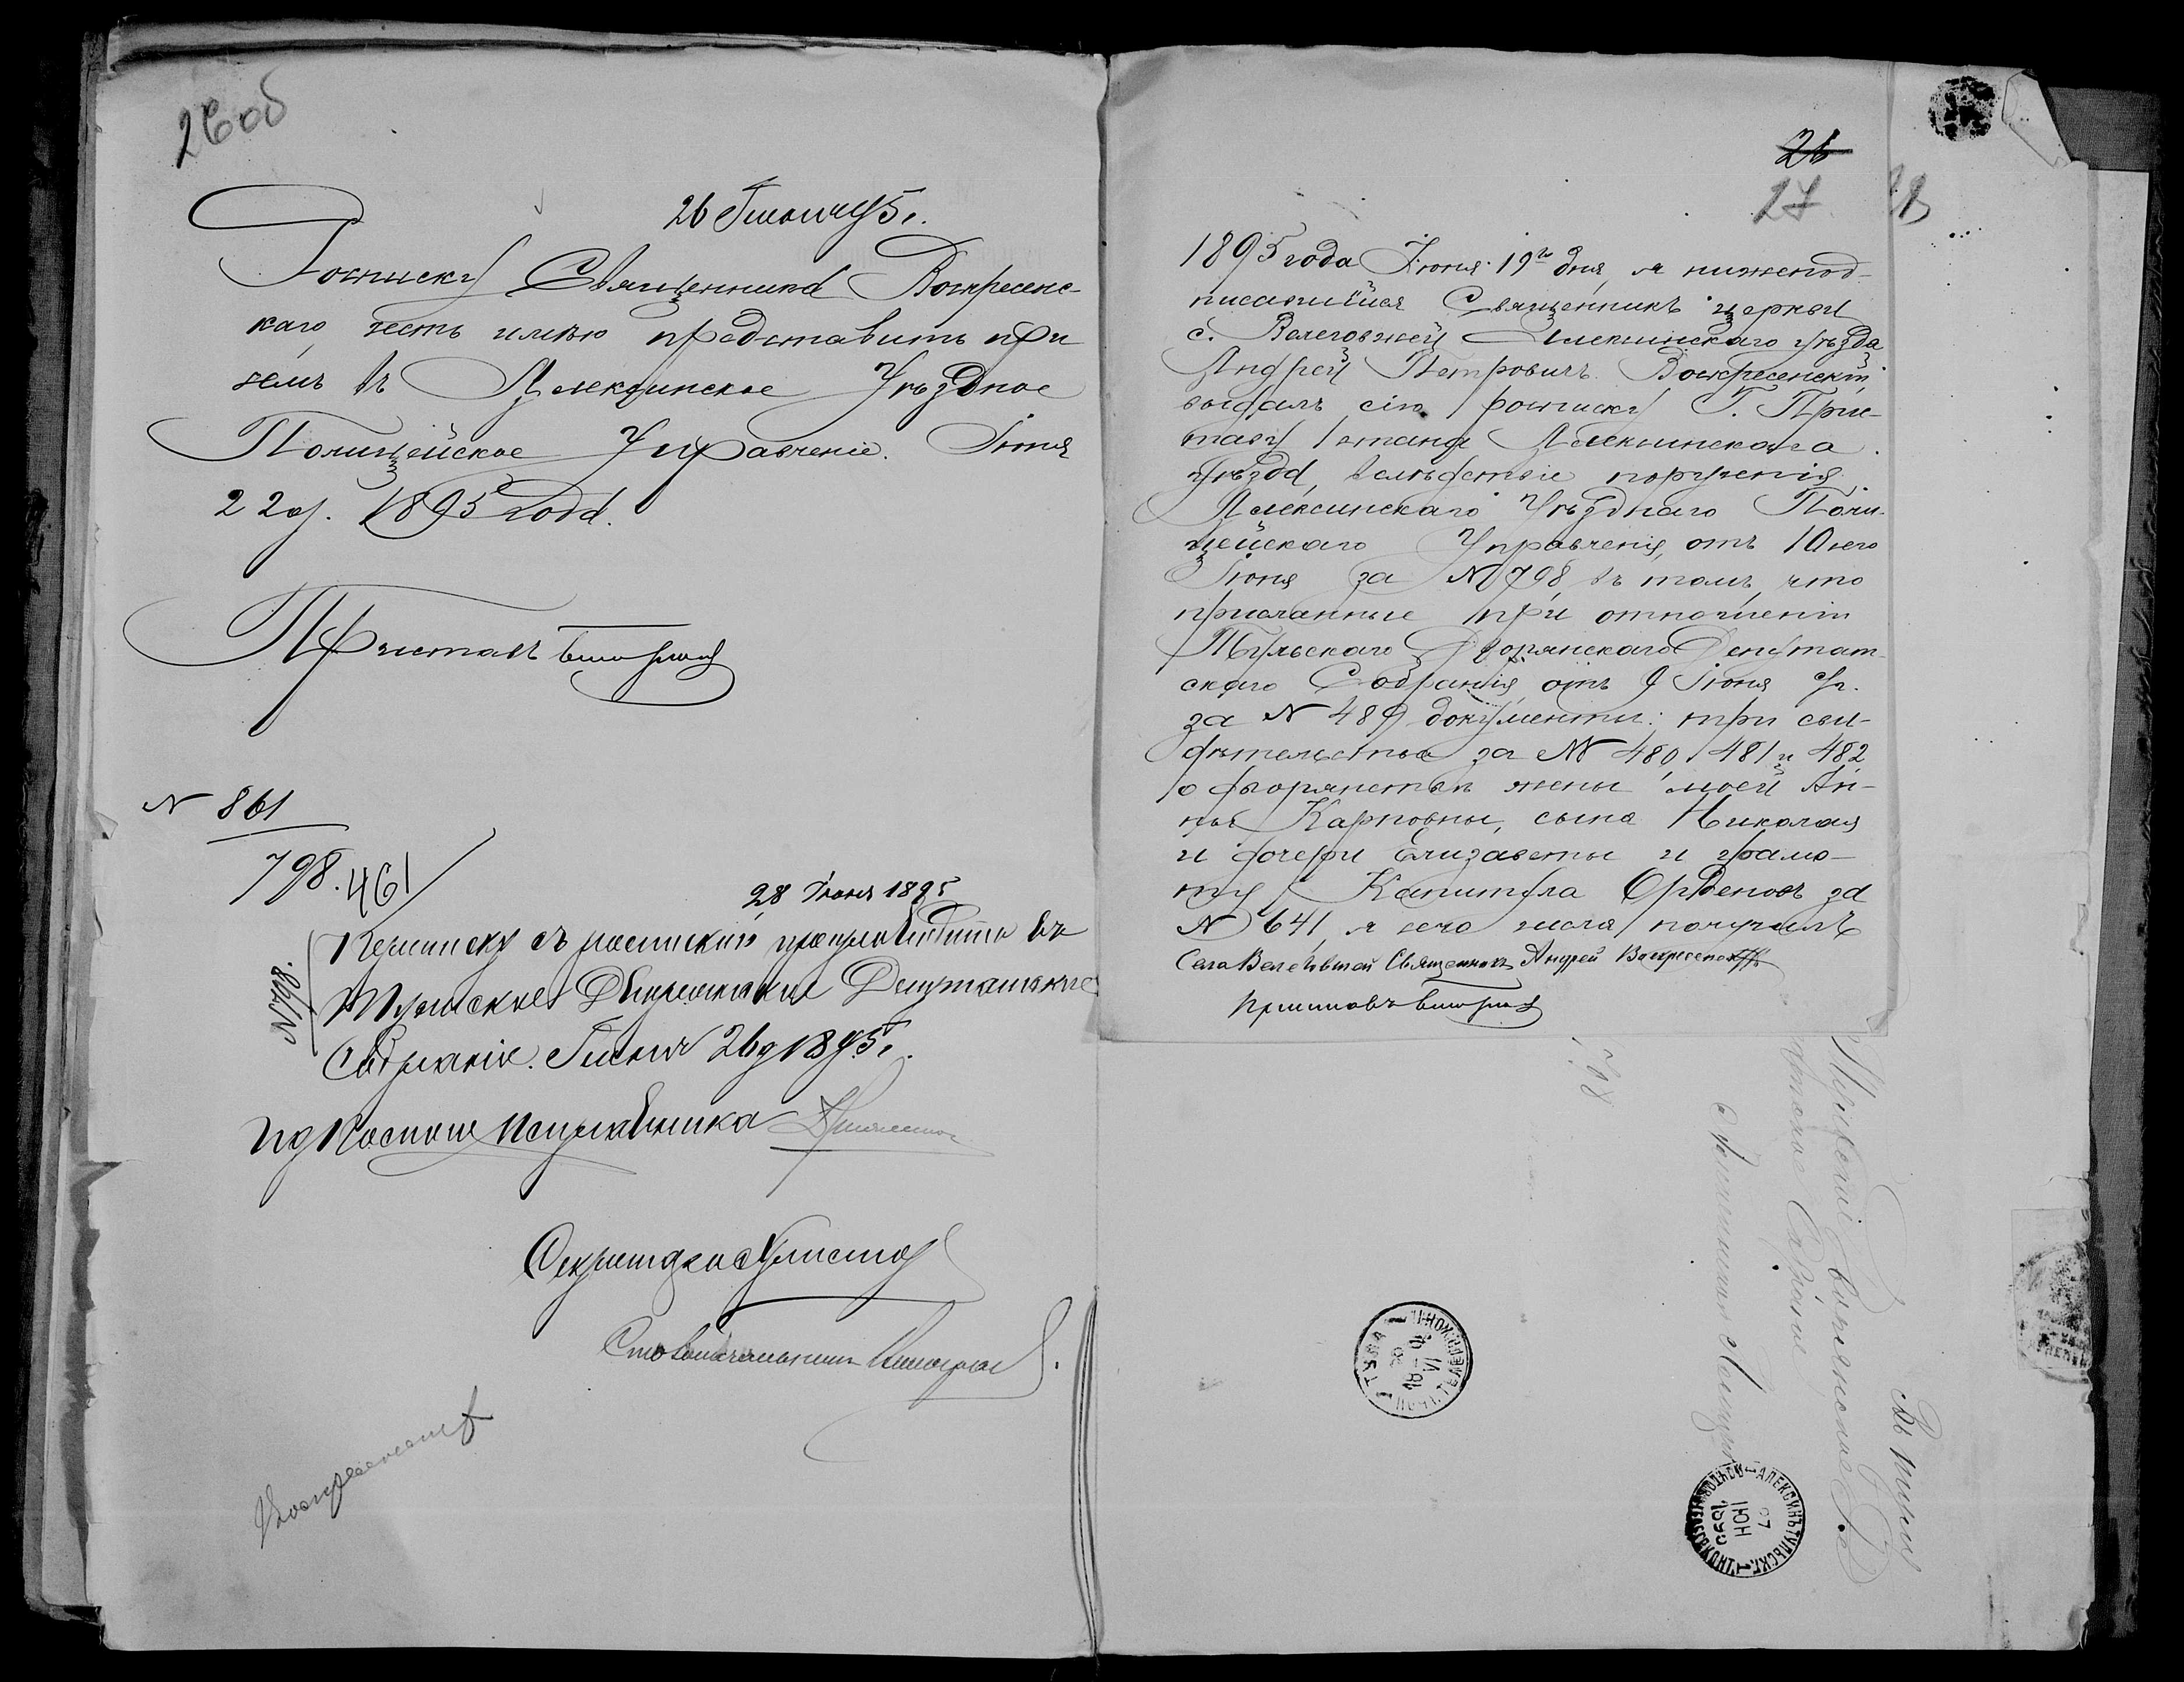 26об
26 Июня 95 г.
Росписку Священника Воскресенс-
каго, честь имѣю представить при
семъ въ Алексинское Уѣздное
Полицейское Управленіе. Іюня
22 д. 1895 года.
Приставъ
N 861
798.
461
28 Июня 1895
N 798.
Переписку съ роспиской препроводить въ
Тульское Дворянское Депутатское
Собраніе. Іюня 26 д 1895 г.
Исправника
Секретарь
Столоначальникъ
Воскресенскій
26
27
28
1895 года Іюня 19го дня, я нижепод-
писавшійся Священникъ церкви
с. Велеговжей Алексинскаго уѣзда
Андрей Петровичъ Воскресенскій,
выдалъ сію росписку Г. При-
ставу 1 стана Алексинскаго
уѣзда, вслѣдствіе порученія
Алексинскаго Уѣзднаго Поли-
цейскаго Управленія, отъ 10 сего
Іюня за N 798, въ томъ, что
присланные при отношеніи
Тульскаго Дворянскаго Депутат-
скаго Собранія отъ 9 Іюня с/г.
за N 489 документы: три сви-
дѣтельства за NN 480, 481 и 482
о дворянствѣ жены моей Ан-
ны Карповны, сына Николая
и дочери Елизаветы и грамо-
ту Капитула Орденовъ за
N 641, я сего числа получилъ
Села Велеговжей Священникъ Андрей Воскресенскій
Приставъ
798
Собраніе
ТУЛА
АЛЕКСИНЪ ТУЛЬСК.
27
ІЮН
1895